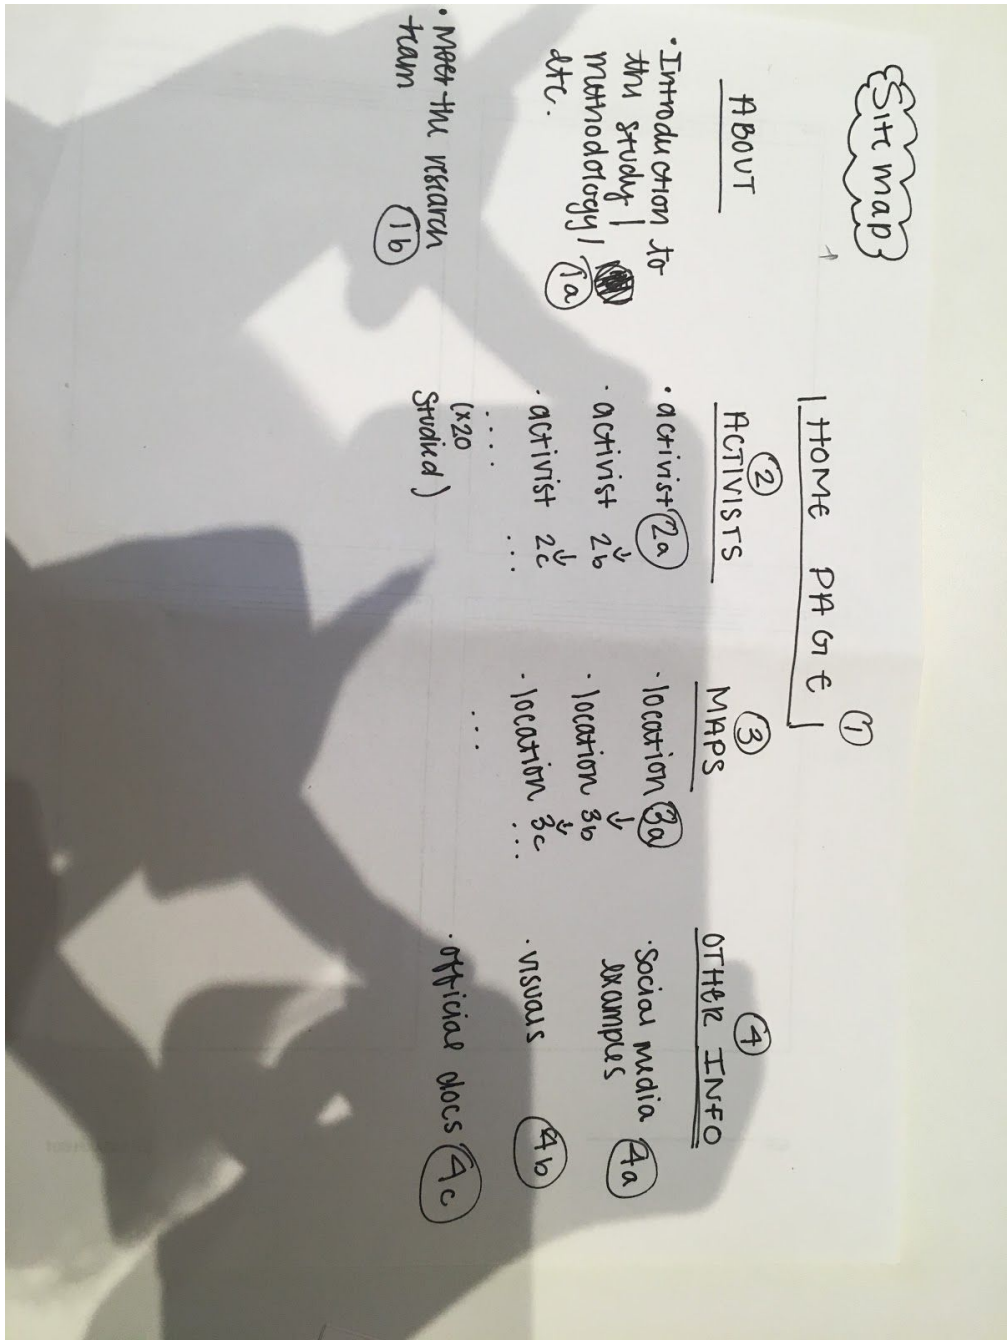 Site map
HOME PAGE 1
ABOUT
• Introduction to
the study /
methodology /
etc. 1a
• Meet the research
team 1b
2
ACTIVISTS
• activist 2a
• activist 2b
• activist 2c
.... ...
(x20
studied)
3
MAPS
• location 3a
• location 3b
• location 3c
... ...
4
OTHER INFO
• Social media
examples 4a
• visuals 4b
• official docs 4c